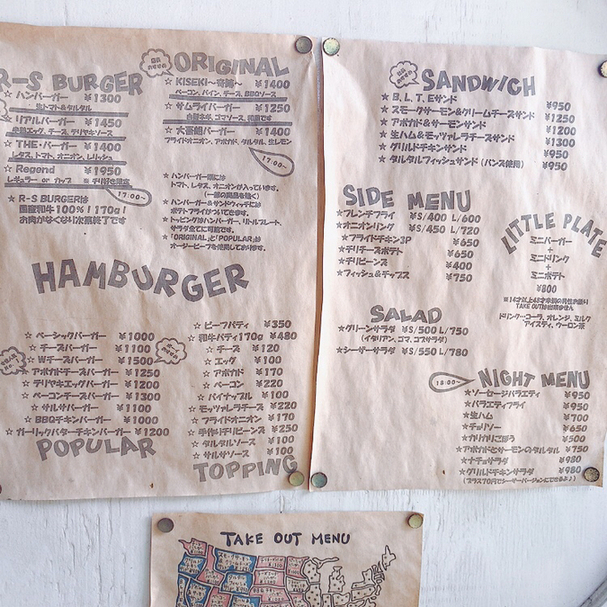 R-S BURGER
☆ ハンバーガー ¥1300
生トマト&タルタル
☆ リアルバーガー ¥1450
チーズ、テリヤキソース
☆ THE・バーガー ¥1400
レタス、トマト、オニオン、レリッシュ
☆ Regend ¥1950
レギュラー or カップ
17:00~
★ R-S BURGERは
国産和牛 100%! 170g!
お肉がなくなり次第終了です
ORIGINAL
☆ KISEKI~奇跡~ ¥1400
ベーコン、パイン、チーズ、BBQソース
☆ サムライバーガー ¥1250
☆ 大喜鵬バーガー ¥1400
フライドオニオン、アボカド、タルタル、生レモン
17:00~
★ ハンバーガー類には
トマト、レタス、オニオンが入っています。
(一部の商品を除く)
★ ハンバーガー&サンドウィッチには
ポテトフライがついてきます。
★ トッピングはハンバーガー、リトルプレート、
サラダ全てに可能です。
★ 「ORIGINAL」と「POPULAR」は
オージービーフを使用しております。
HAMBURGER
☆ ベーシックバーガー ¥1000
☆ チーズバーガー ¥1100
☆ Wチーズバーガー ¥1500
☆ アボカドチーズバーガー ¥1250
☆ テリヤキエッグバーガー ¥1200
☆ ベーコンチーズバーガー ¥1300
☆ サルサバーガー ¥1100
☆ BBQチキンバーガー ¥1000
☆ ガーリックバターチキンバーガー ¥1200
POPULAR
☆ ビーフパティ ¥350
☆ 和牛パティ170g ¥480
☆ チーズ ¥120
☆ エッグ ¥100
☆ アボカド ¥170
☆ ベーコン ¥220
☆ パイナップル ¥100
☆ モッツァレラチーズ ¥220
☆ フライドオニオン ¥170
☆ 手作りチリビーンズ ¥250
☆ タルタルソース ¥100
☆ サルサソース ¥100
TOPPING
SANDWICH
★ B、L、T、Eサンド ¥950
★ スモークサーモン&クリームチーズサンド ¥1250
★ アボカド&サーモンサンド ¥1200
★ 生ハム&モッツァレラチーズサンド ¥1300
★ グリルドチキンサンド ¥950
★ タルタルフィッシュサンド (バンズ使用) ¥950
SIDE MENU
★フレンチフライ ¥S/400 L/600
★オニオンリング ¥S/450 L/720
★フライドチキン3P ¥650
★チリチーズポテト ¥650
★チリビーンズ ¥400
★フィッシュ&チップス ¥750
LITTLE PLATE
ミニバーガー
+
ミニドリンク
+
ミニポテト
¥800
ドリンク…コーラ、オレンジ、ミルク
アイスティ、ウーロン茶
SALAD
★グリーンサラダ ¥S/500 L/750
(イタリアン、ゴマ、コブサラダ)
★シーザーサラダ ¥S/550 L/780
18:00~
NIGHT MENU
★ソーセージバラエティ ¥950
★バラエティフライ ¥950
★生ハム ¥700
★チョリソー ¥650
★カリカリごぼう ¥500
★アボカドとサーモンのタルタル ¥750
★ナチョサラダ ¥980
★グリルドチキンサラダ ¥980
(プラス70円でシーザーバージョンにできるよ♪)
TAKE OUT MENU